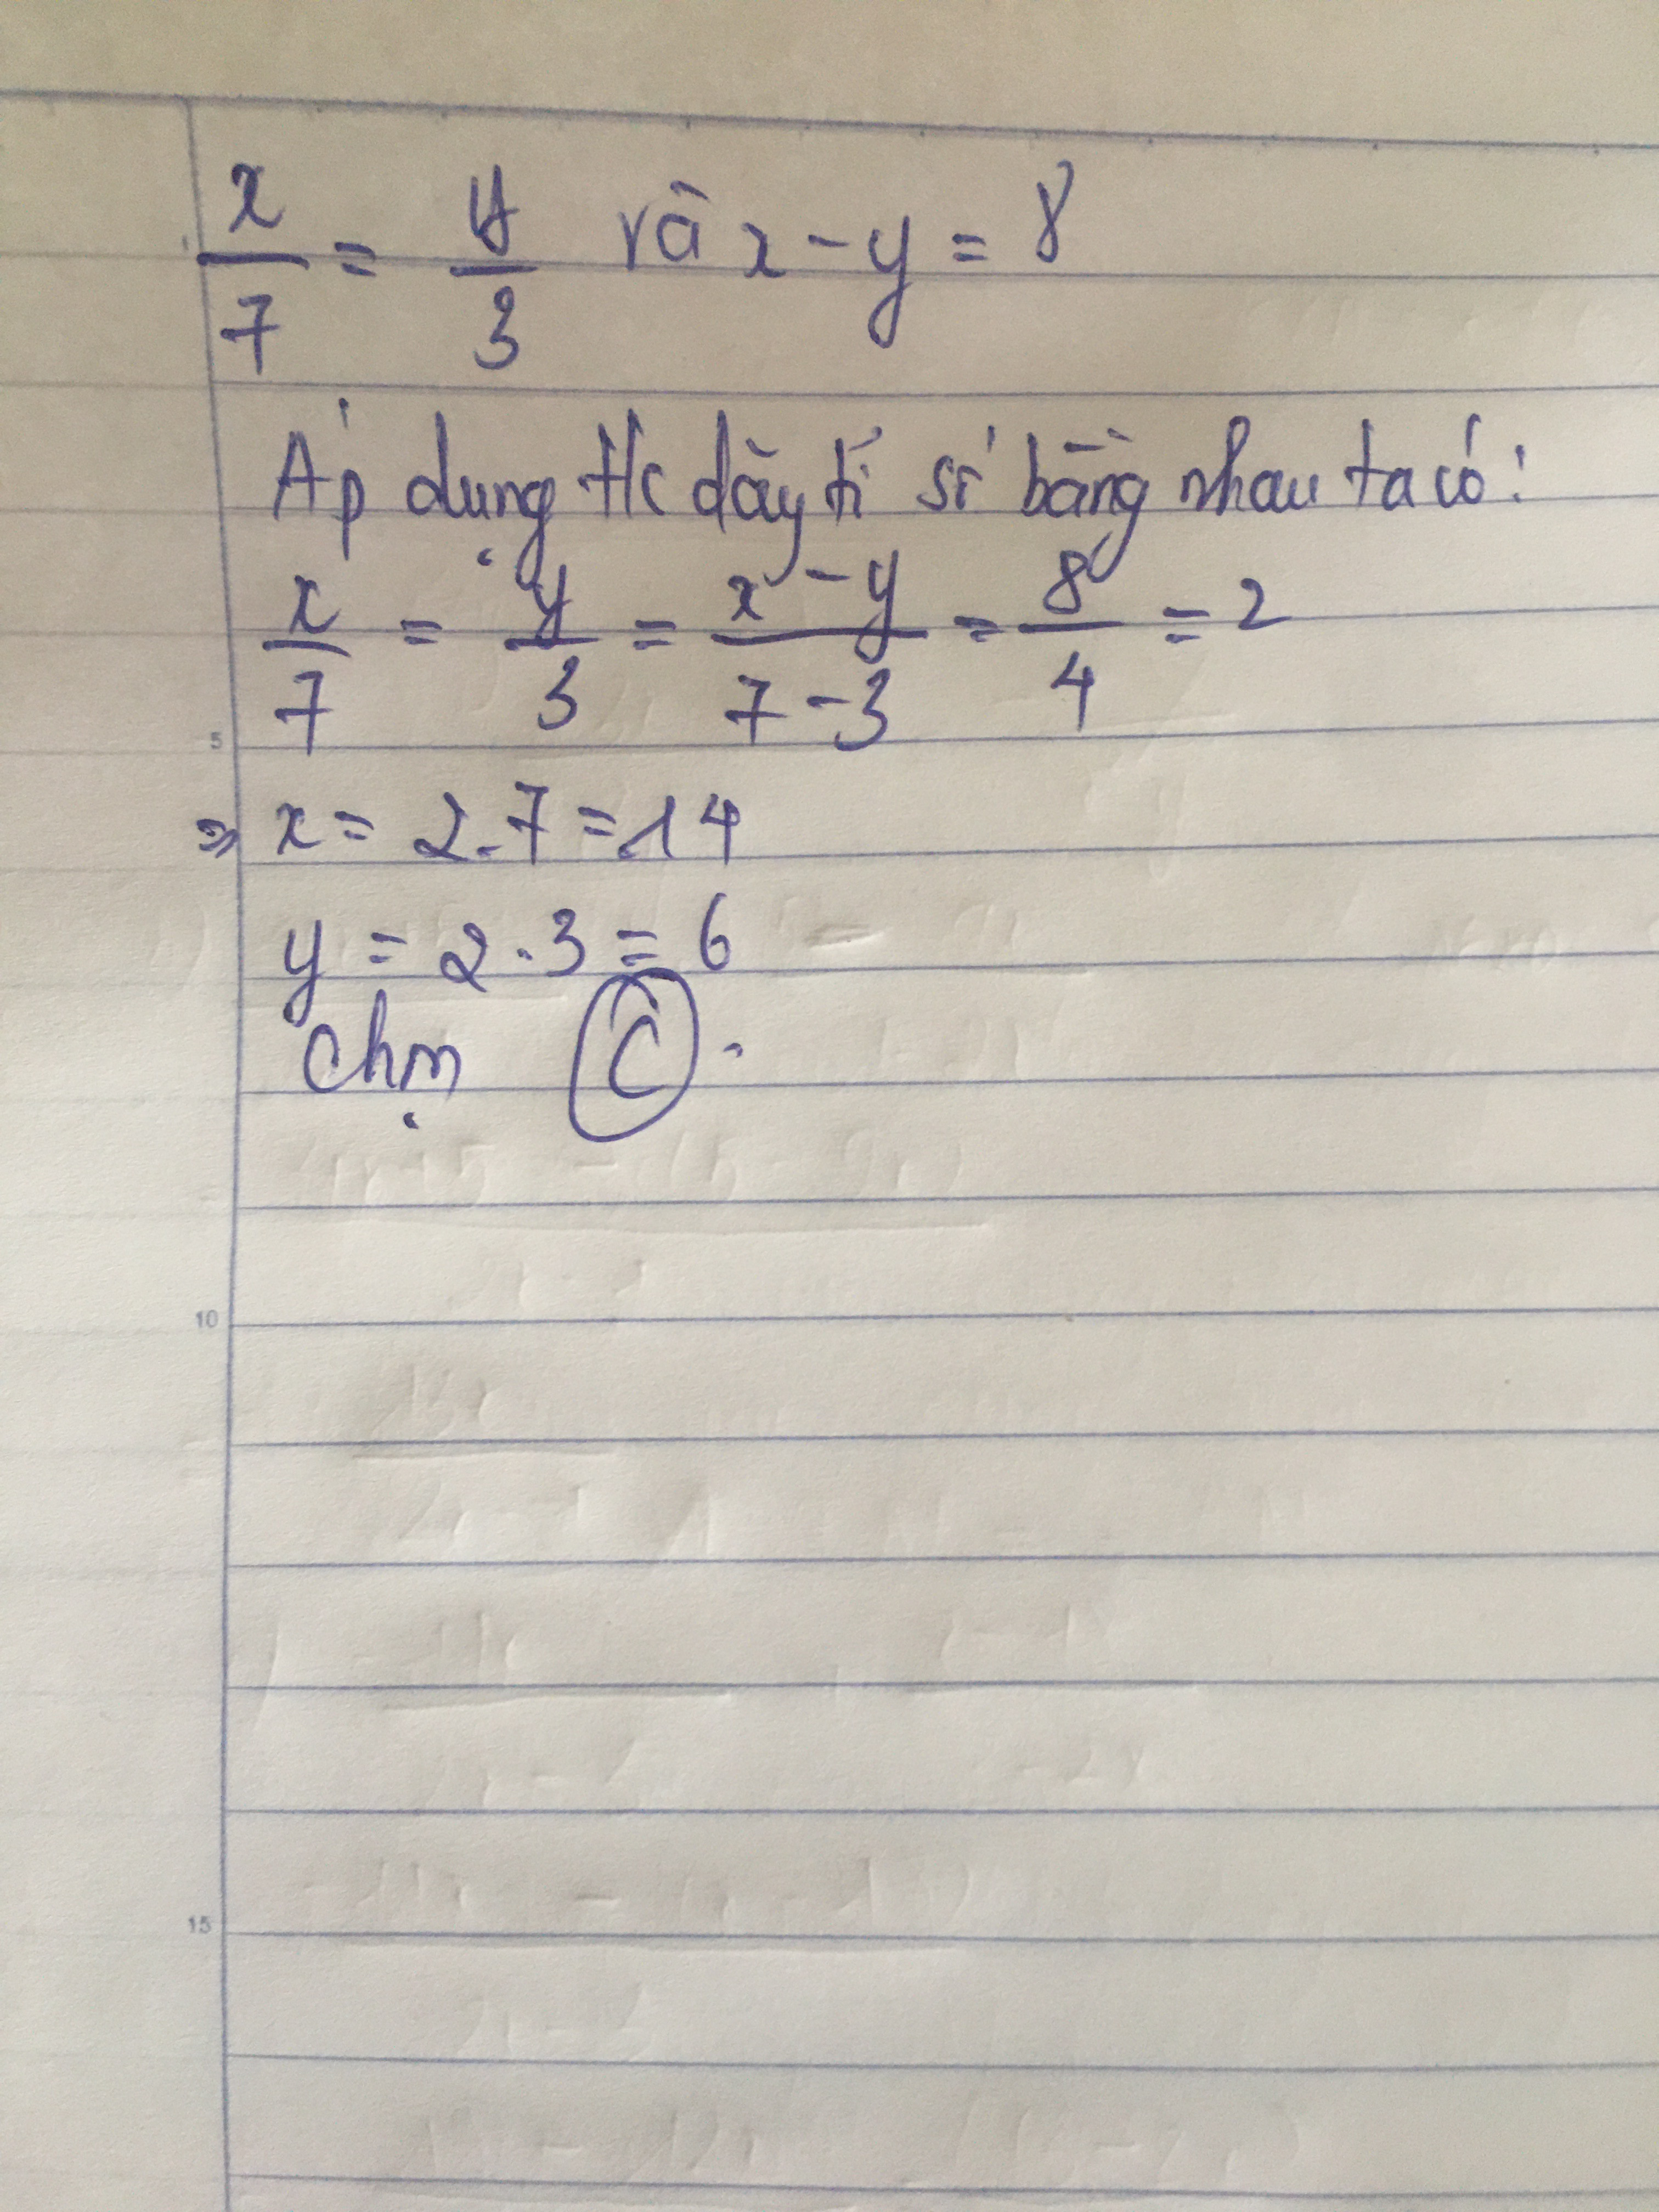 x/7 = y/3 và x - y = 8
Áp dụng t/c dãy tỉ số bằng nhau ta có:
x/7 = y/3 = x - y/7 - 3 = 8/4 = 2
⇒ x = 2.7 = 14
y = 2.3 = 6
Chọn C.
1
5
10
15